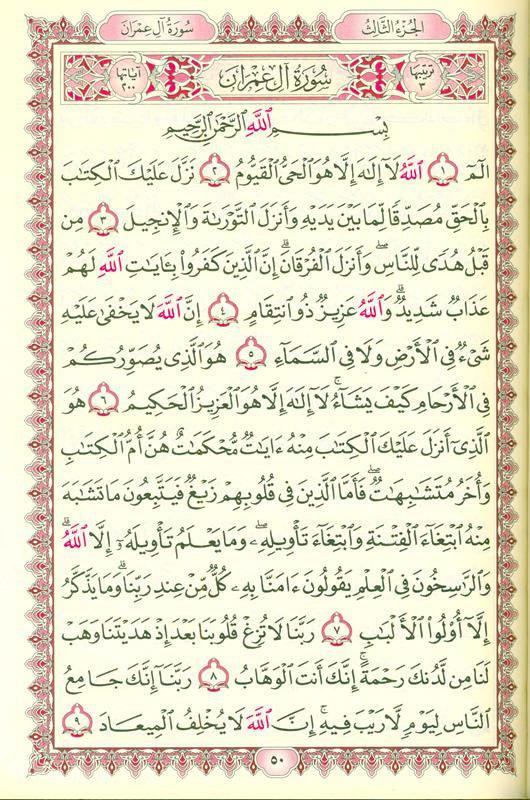 سُورَةُ آلِ عِمْرَانَ الجُزْءُ الثَّالِثُ
تَرْتِيبُهَا ٣ سُورَةُ آلِ عِمْرَانَ آيَاتُهَا ٢٠٠
بِسْمِ ٱللَّهِ ٱلرَّحْمَٰنِ ٱلرَّحِيمِ
الٓمٓ ١ ٱللَّهُ لَآ إِلَٰهَ إِلَّا هُوَ ٱلْحَىُّ ٱلْقَيُّومُ ٢ نَزَّلَ عَلَيْكَ ٱلْكِتَٰبَ
بِٱلْحَقِّ مُصَدِّقًا لِّمَا بَيْنَ يَدَيْهِ وَأَنزَلَ ٱلتَّوْرَىٰةَ وَٱلْإِنجِيلَ ٣ مِن
قَبْلُ هُدًى لِّلنَّاسِ وَأَنزَلَ ٱلْفُرْقَانَ ۗ إِنَّ ٱلَّذِينَ كَفَرُوا۟ بِـَٔايَٰتِ ٱللَّهِ لَهُمْ
عَذَابٌ شَدِيدٌ ۗ وَٱللَّهُ عَزِيزٌ ذُو ٱنتِقَامٍ ٤ إِنَّ ٱللَّهَ لَا يَخْفَىٰ عَلَيْهِ
شَىْءٌ فِى ٱلْأَرْضِ وَلَا فِى ٱلسَّمَآءِ ٥ هُوَ ٱلَّذِى يُصَوِّرُكُمْ
فِى ٱلْأَرْحَامِ كَيْفَ يَشَآءُ ۚ لَآ إِلَٰهَ إِلَّا هُوَ ٱلْعَزِيزُ ٱلْحَكِيمُ ٦ هُوَ
ٱلَّذِىٓ أَنزَلَ عَلَيْكَ ٱلْكِتَٰبَ مِنْهُ ءَايَٰتٌ مُّحْكَمَٰتٌ هُنَّ أُمُّ ٱلْكِتَٰبِ
وَأُخَرُ مُتَشَٰبِهَٰتٌ ۖ فَأَمَّا ٱلَّذِينَ فِى قُلُوبِهِمْ زَيْغٌ فَيَتَّبِعُونَ مَا تَشَٰبَهَ
مِنْهُ ٱبْتِغَآءَ ٱلْفِتْنَةِ وَٱبْتِغَآءَ تَأْوِيلِهِۦ ۖ وَمَا يَعْلَمُ تَأْوِيلَهُۥٓ إِلَّا ٱللَّهُ ۗ
وَٱلرَّٰسِخُونَ فِى ٱلْعِلْمِ يَقُولُونَ ءَامَنَّا بِهِۦ كُلٌّ مِّنْ عِندِ رَبِّنَا ۗ وَمَا يَذَّكَّرُ
إِلَّآ أُو۟لُوا۟ ٱلْأَلْبَٰبِ ٧ رَبَّنَا لَا تُزِغْ قُلُوبَنَا بَعْدَ إِذْ هَدَيْتَنَا وَهَبْ
لَنَا مِن لَّدُنكَ رَحْمَةً ۚ إِنَّكَ أَنتَ ٱلْوَهَّابُ ٨ رَبَّنَآ إِنَّكَ جَامِعُ
ٱلنَّاسِ لِيَوْمٍ لَّا رَيْبَ فِيهِ ۚ إِنَّ ٱللَّهَ لَا يُخْلِفُ ٱلْمِيعَادَ ٩
٥٠